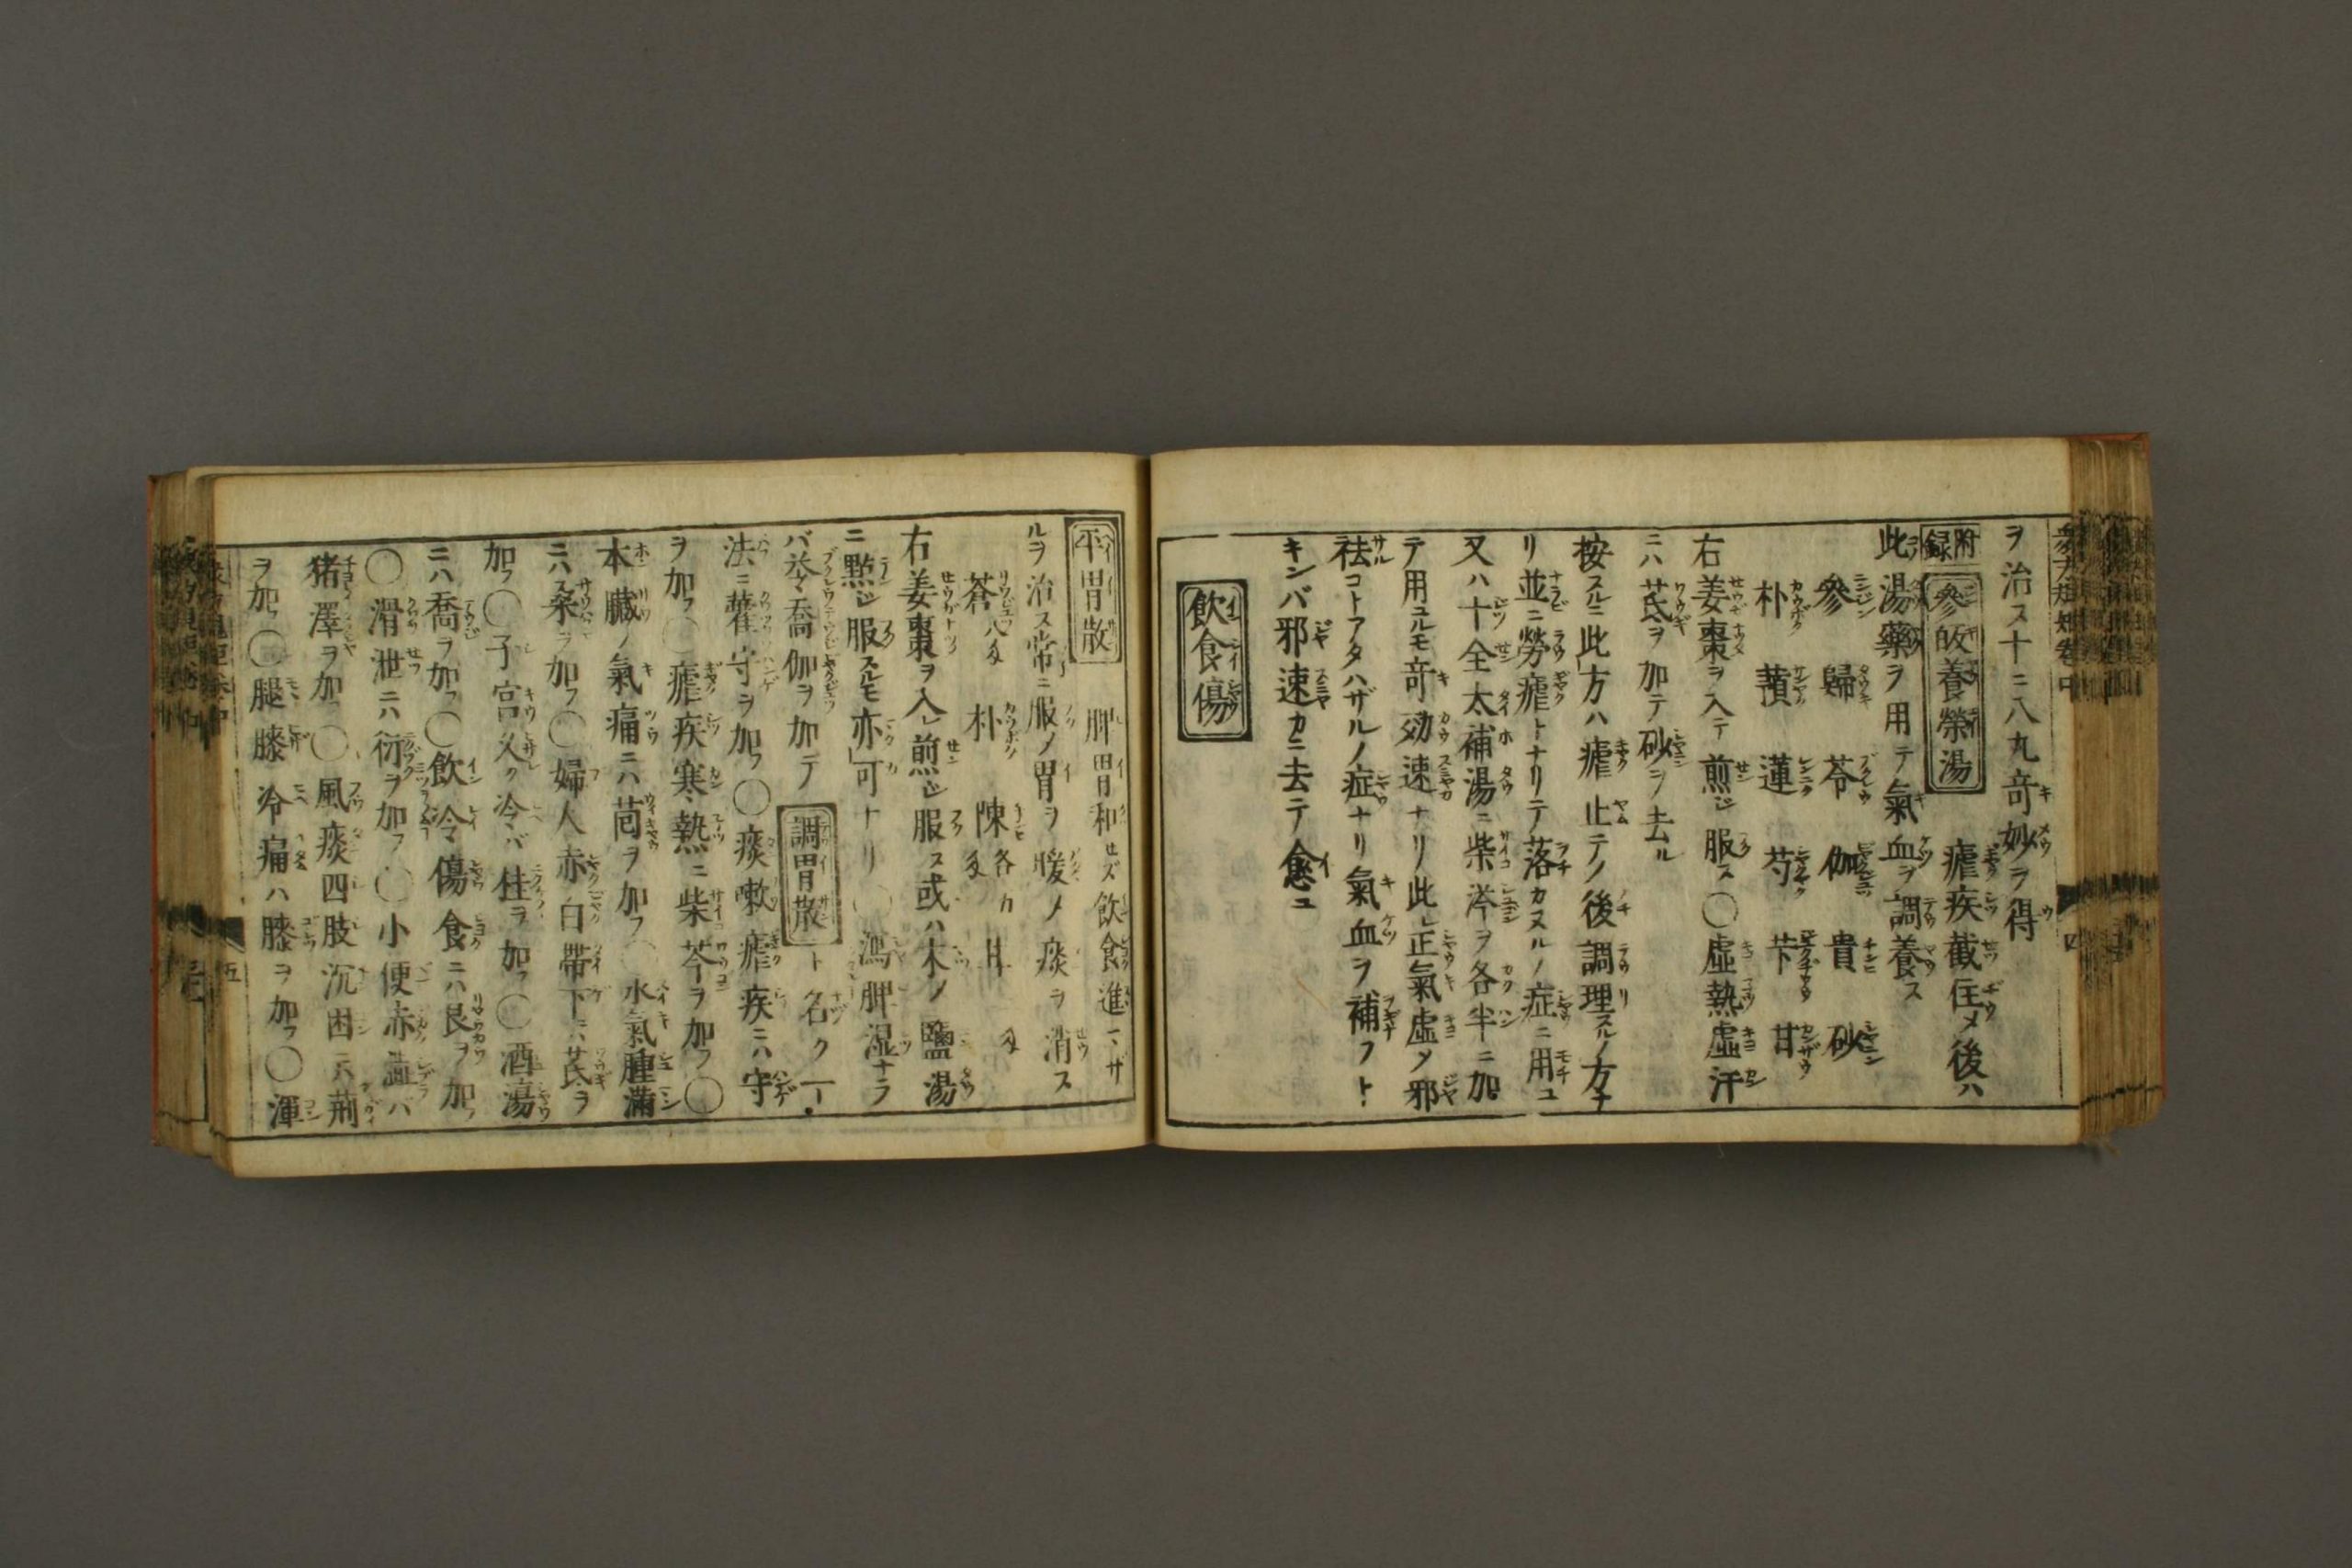 ヲ治ス十ニ八丸竒妙ヲ得
附録 參皈養榮湯 瘧疾截住メ後ハ
此湯藥ヲ用テ氣血ヲ調養ス
參 歸 苓 伽 貴 砂
朴 蓮 芍 苄 甘
右姜棗ヲ入テ煎じ服ス〇虚熱虚汗
ニハ芪ヲ加テ砂ヲ去ル
按スルニ此方ハ瘧止テノ後調理スルノ方ナ
リ並ニ勞瘧トナリテ落カヌルノ症ニ用ユ
又ハ十全太補湯ニ柴芩ヲ各半ニ加
テ用ユルモ竒効速ナリ此レ正氣虚メ邪
祛コトアタハザルノ症ナリ氣血ヲ補フト
キンバ邪速カニ去テ愈ユ
飲食傷
平胃散 脾胃和せズ飲食進マザ
ルヲ治ス常ニ服ノ胃ヲ暖メ痰ヲ消ス
蒼 八 朴 陳 各
右姜棗ヲ入レ煎じ服ス或ハ木ノ鹽湯
ニ㸃じ服スルモ亦可ナリ〇脾湿ナラ
バ苓喬伽ヲ加テ 調胃散 ト名ク一
法ニ藿守ヲ加フ〇痰嗽瘧疾ニハ守
ヲ加フ〇瘧疾寒熱ニ柴芩ヲ加フ〇
本臓ノ氣痛ニハ茴ヲ加フ〇水氣腫滿
ニハ桑ヲ加フ〇婦人赤白帶下ニハ芪ヲ
加フ〇子宮久ク冷バ桂ヲ加フ〇酒
ニハ喬ヲ加フ〇飲冷傷食ニハ良ヲ加フ
〇滑泄ニハ衍ヲ加フ〇小便赤澁バ
猪澤ヲ加フ〇風痰四肢沉困ニハ荊
ヲ加フ〇腿膝冷痛ハ膝ヲ加フ〇渾